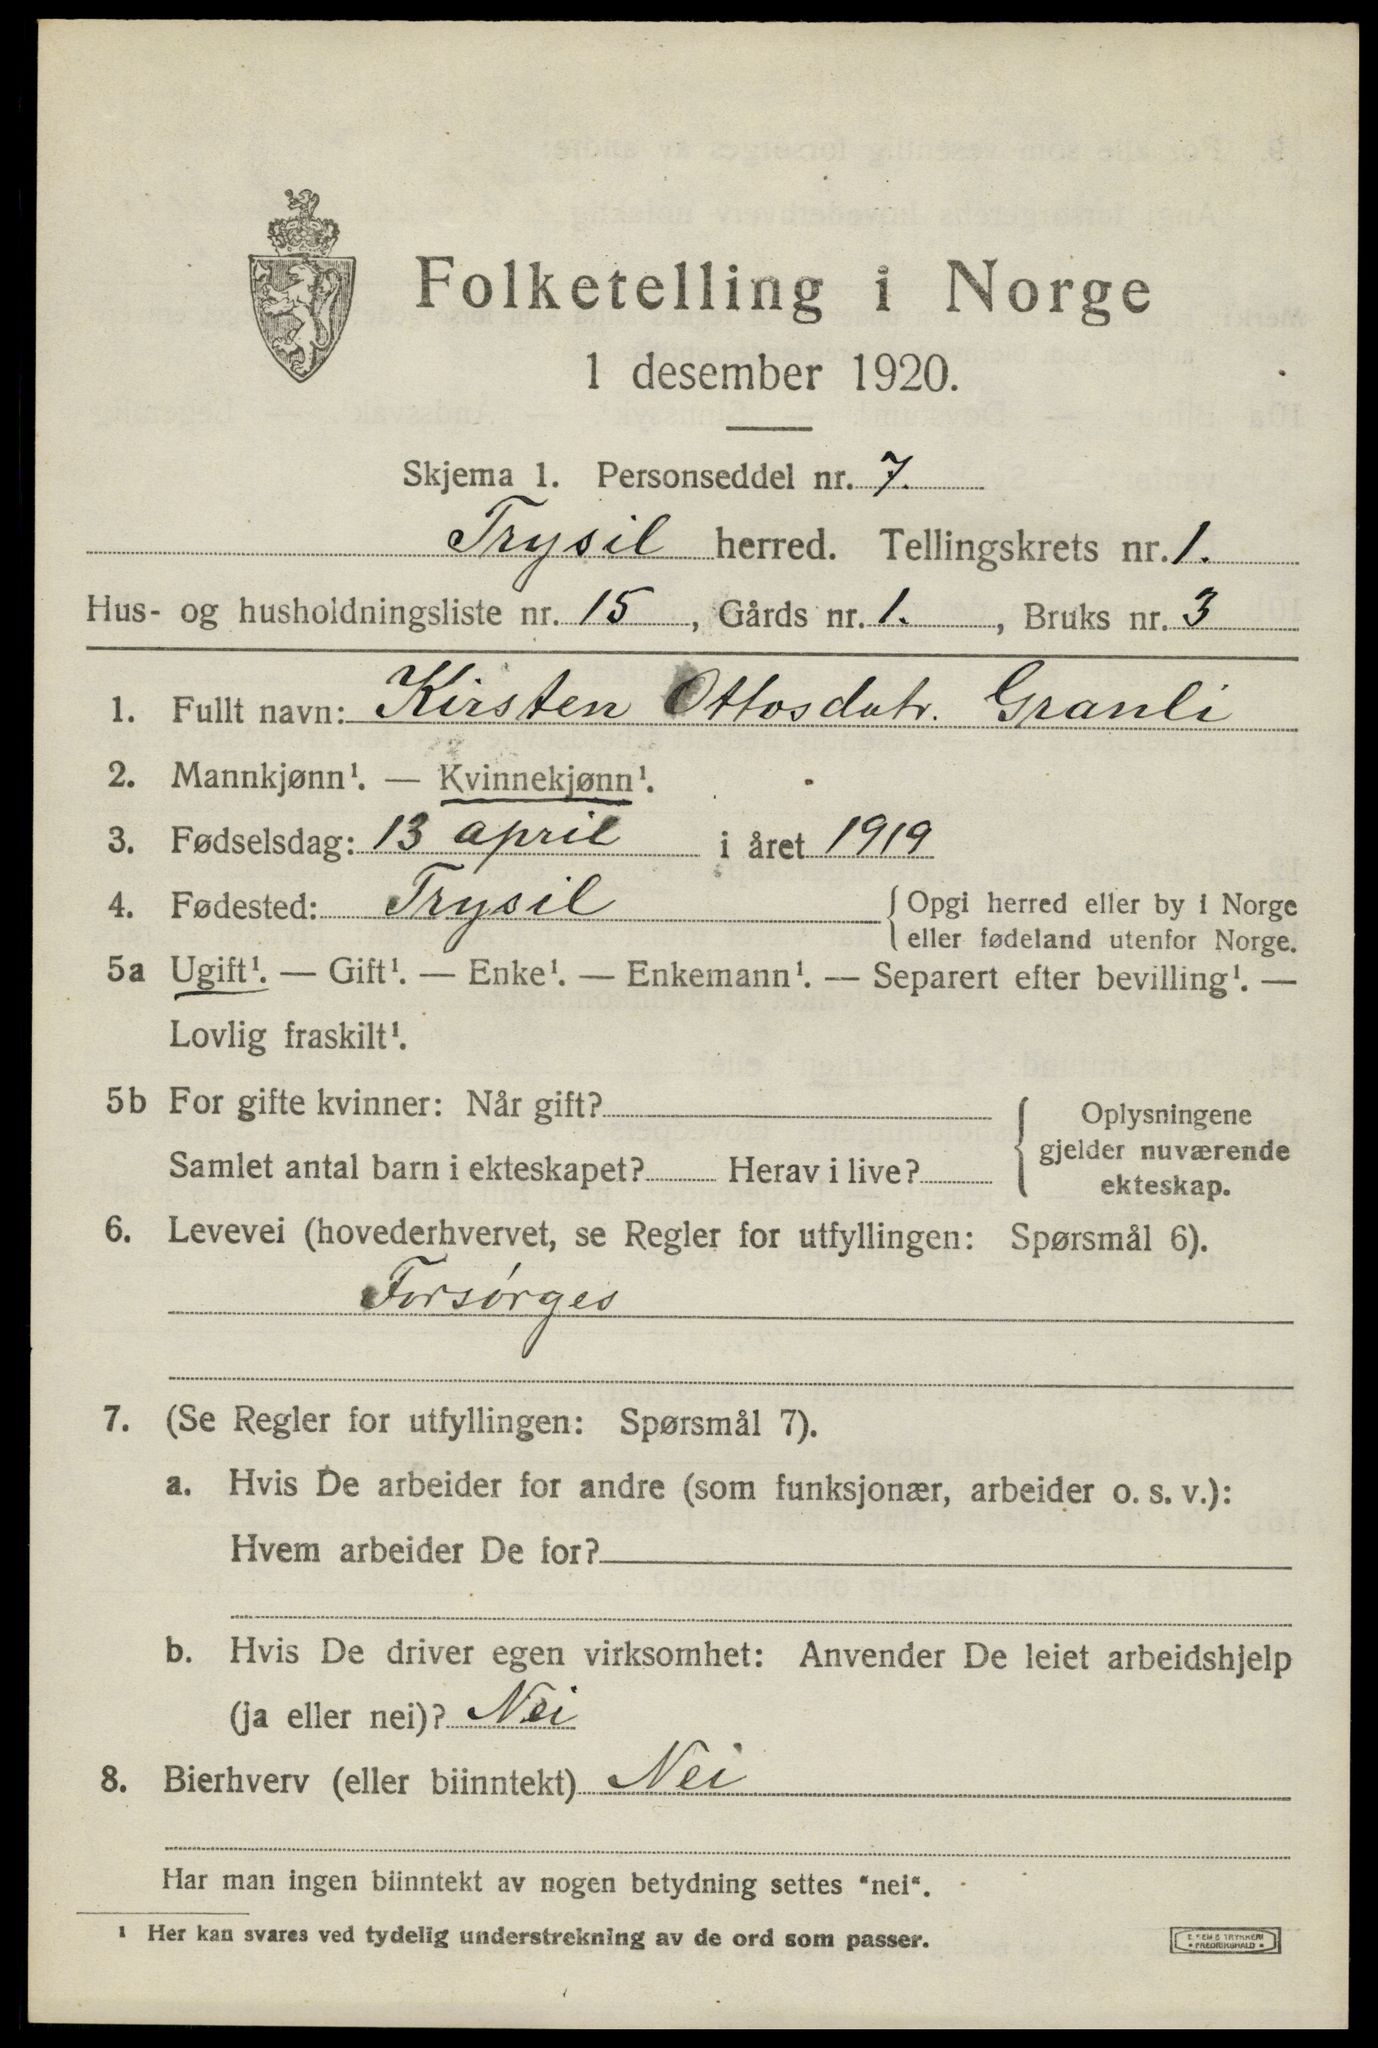 Folketelling i Norge
1 desember 1920.
Skjema 1. Personseddel nr. 7.
Trysil herred. Tellingskrets nr. 1.
Hus- og husholdningsliste nr. 15, Gårds nr. 1., Bruks nr. 3
1. Fullt navn: Kirsten Ottosdatr. Granli
2. Mannkjønn¹. — Kvinnekjønn¹.
3. Fødselsdag: 13 april i året 1919
4. Fødested: Trysil {Opgi herred eller by i Norge
eller fødeland utenfor Norge.
5a Ugift¹. — Gift¹. — Enke¹. — Enkemann¹. — Separert efter bevilling¹. —
Lovlig fraskilt¹.
5b For gifte kvinner: Når gift?
Samlet antal barn i ekteskapet? Herav i live?
{ Oplysningene
gjelder nuværende
ekteskap.
6. Levevei (hovederhvervet, se Regler for utfyllingen: Spørsmål 6).
Forsørges
7. (Se Regler for utfyllingen: Spørsmål 7).
a. Hvis De arbeider for andre (som funksjonær, arbeider o. s. v.):
Hvem arbeider De for?
b. Hvis De driver egen virksomhet: Anvender De leiet arbeidshjelp
(ja eller nei)? Nei
8. Bierhverv (eller biinntekt) Nei
Har man ingen biinntekt av nogen betydning settes "nei".
¹ Her kan svares ved tydelig understrekning av de ord som passer.
E. SEM'S TRYKKERI
FREDRIKSHALD